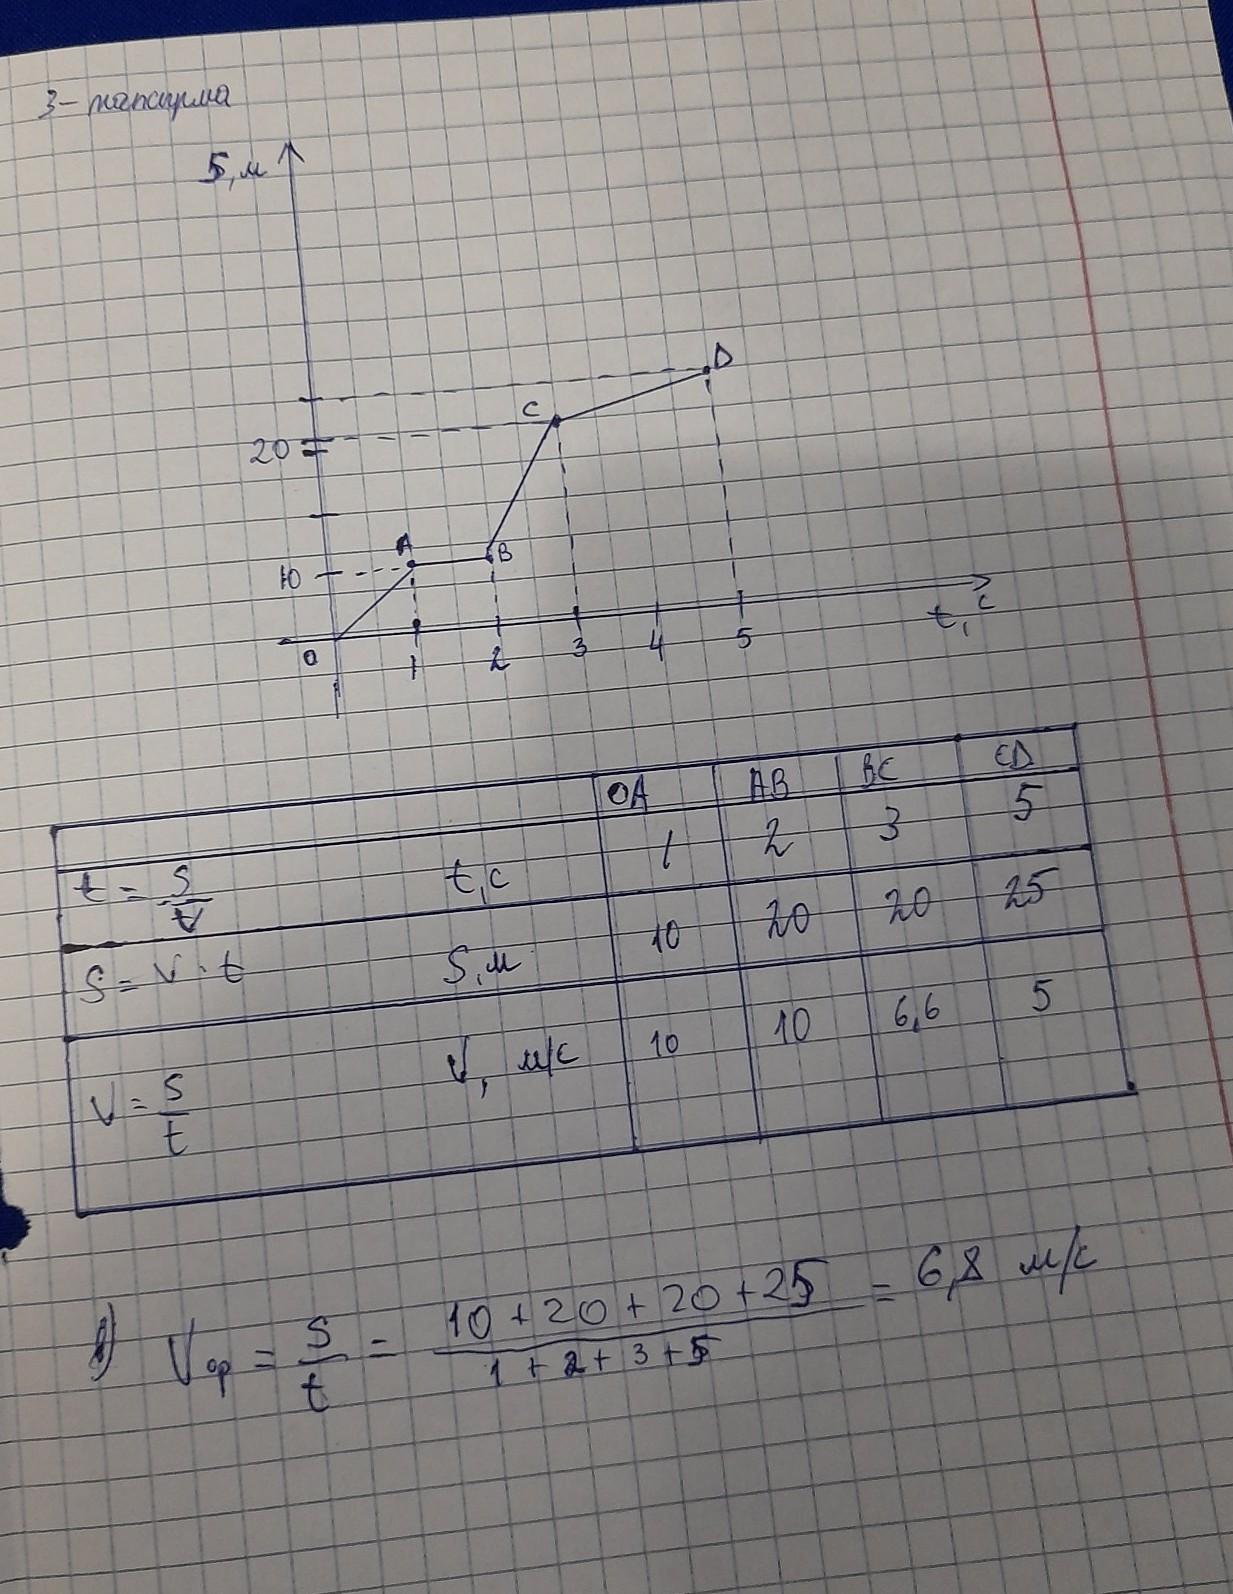 3-тапсырма
S, м
D
C
20
A
B
10
0 1 2 3 4 5 t, c
OA AB BC CD
t = S/V t, c 1 2 3 5
S = V · t S, м 10 20 20 25
V = S/t V, м/с 10 10 6,6 5
Vор = S/t = 10 + 20 + 20 + 25 / 1 + 2 + 3 + 5 = 6,8 м/с